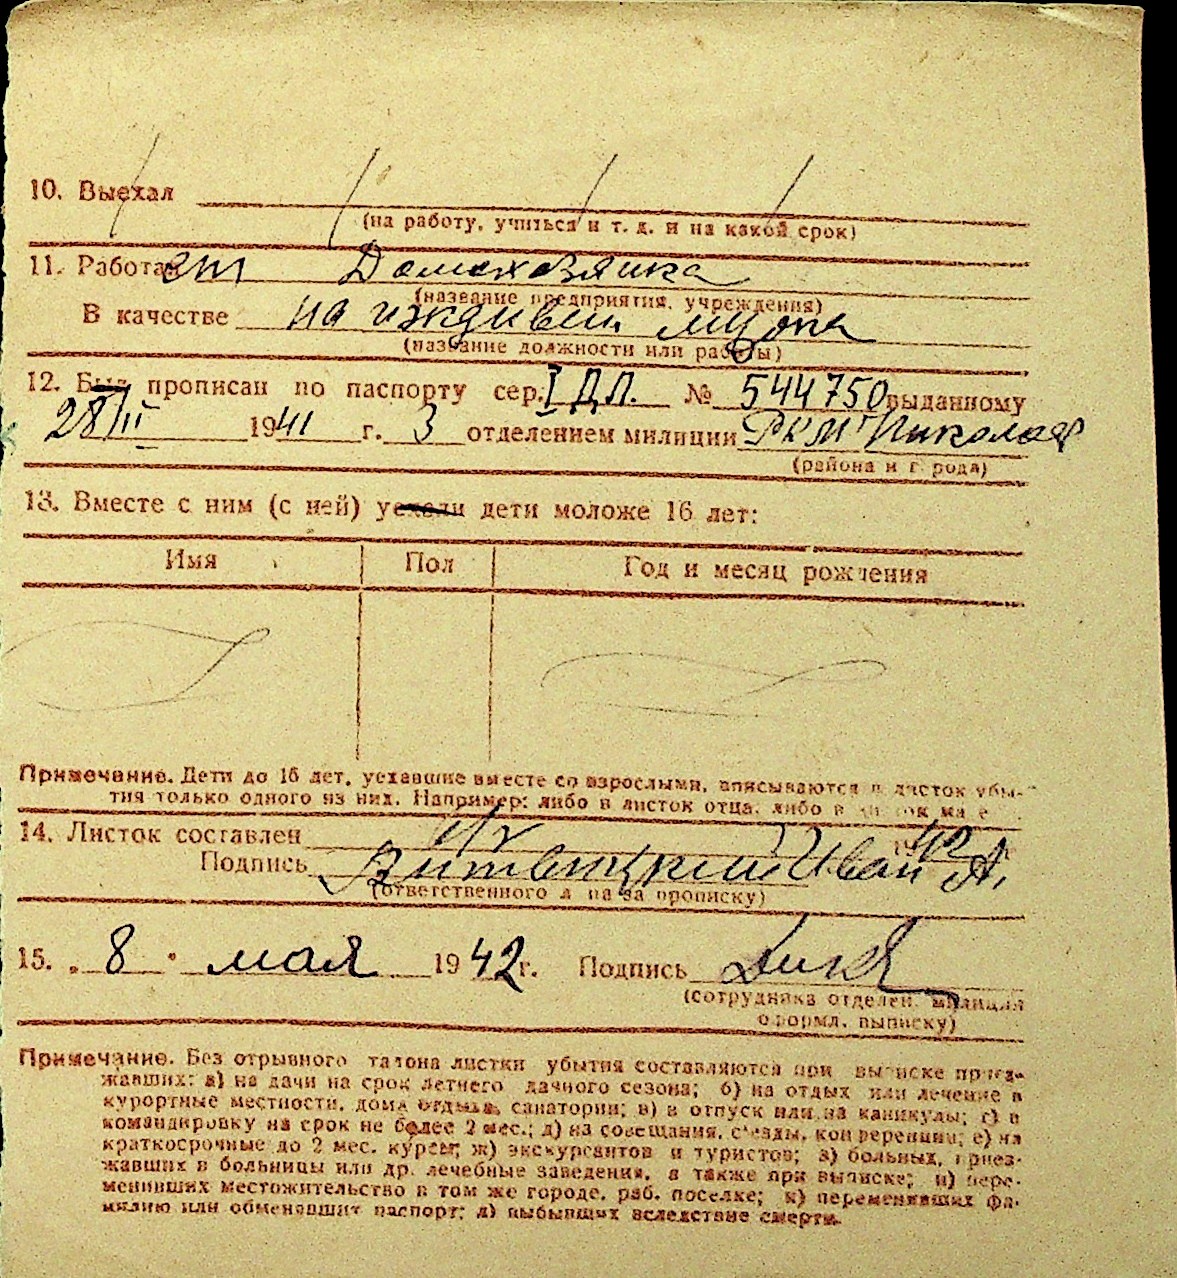 10. Выехал
(на работу, учиться и т. д. и на какой срок)
11. Работает Домохозяйка
(название предприятия, учреждения)
В качестве на иждивен. мужа
(название должности или работы)
12. Был прописан по паспорту сер. I ДЛ. № 544750 выданному
28/III 1941 г. 3 отделением милиции РКМ Николаев
(района и города)
13. Вместе с ним (с ней) уехали дети моложе 16 лет:
Имя Пол Год и месяц рождения
Примечание. Дети до 16 лет, уехавшие вместе со взрослыми, вписываются в листок убы-
тия только одного из них. Например: либо в листок отца, либо в листок ма е
14. Листок составлен 1942
Подпись Иван А.
(ответственного лица за прописку)
15. „ 8 " мая 1942 г. Подпись
(сотрудника отделен. милиции
оформл. выписку)
Примечание. Без отрывного талона листки убытия составляются при выписке приез-
жавших: а) на дачи на срок летнего дачного сезона; б) на отдых или лечение в
курортные местности, дома отдыха, санатории; в) в отпуск или на каникулы; г) в
командировку на срок не более 2 мес.; д) на совещания, съезды, конференции; е) на
краткосрочные до 2 мес. курсы; ж) экскурсантов и туристов; з) больных, приез-
жавших в больницы или др. лечебные заведения, а также при выписке; и) пере-
менивших местожительство в том же городе, раб. поселке; к) переменивших фа-
милию или обменявших паспорт; л) выбывших вследствие смерти.